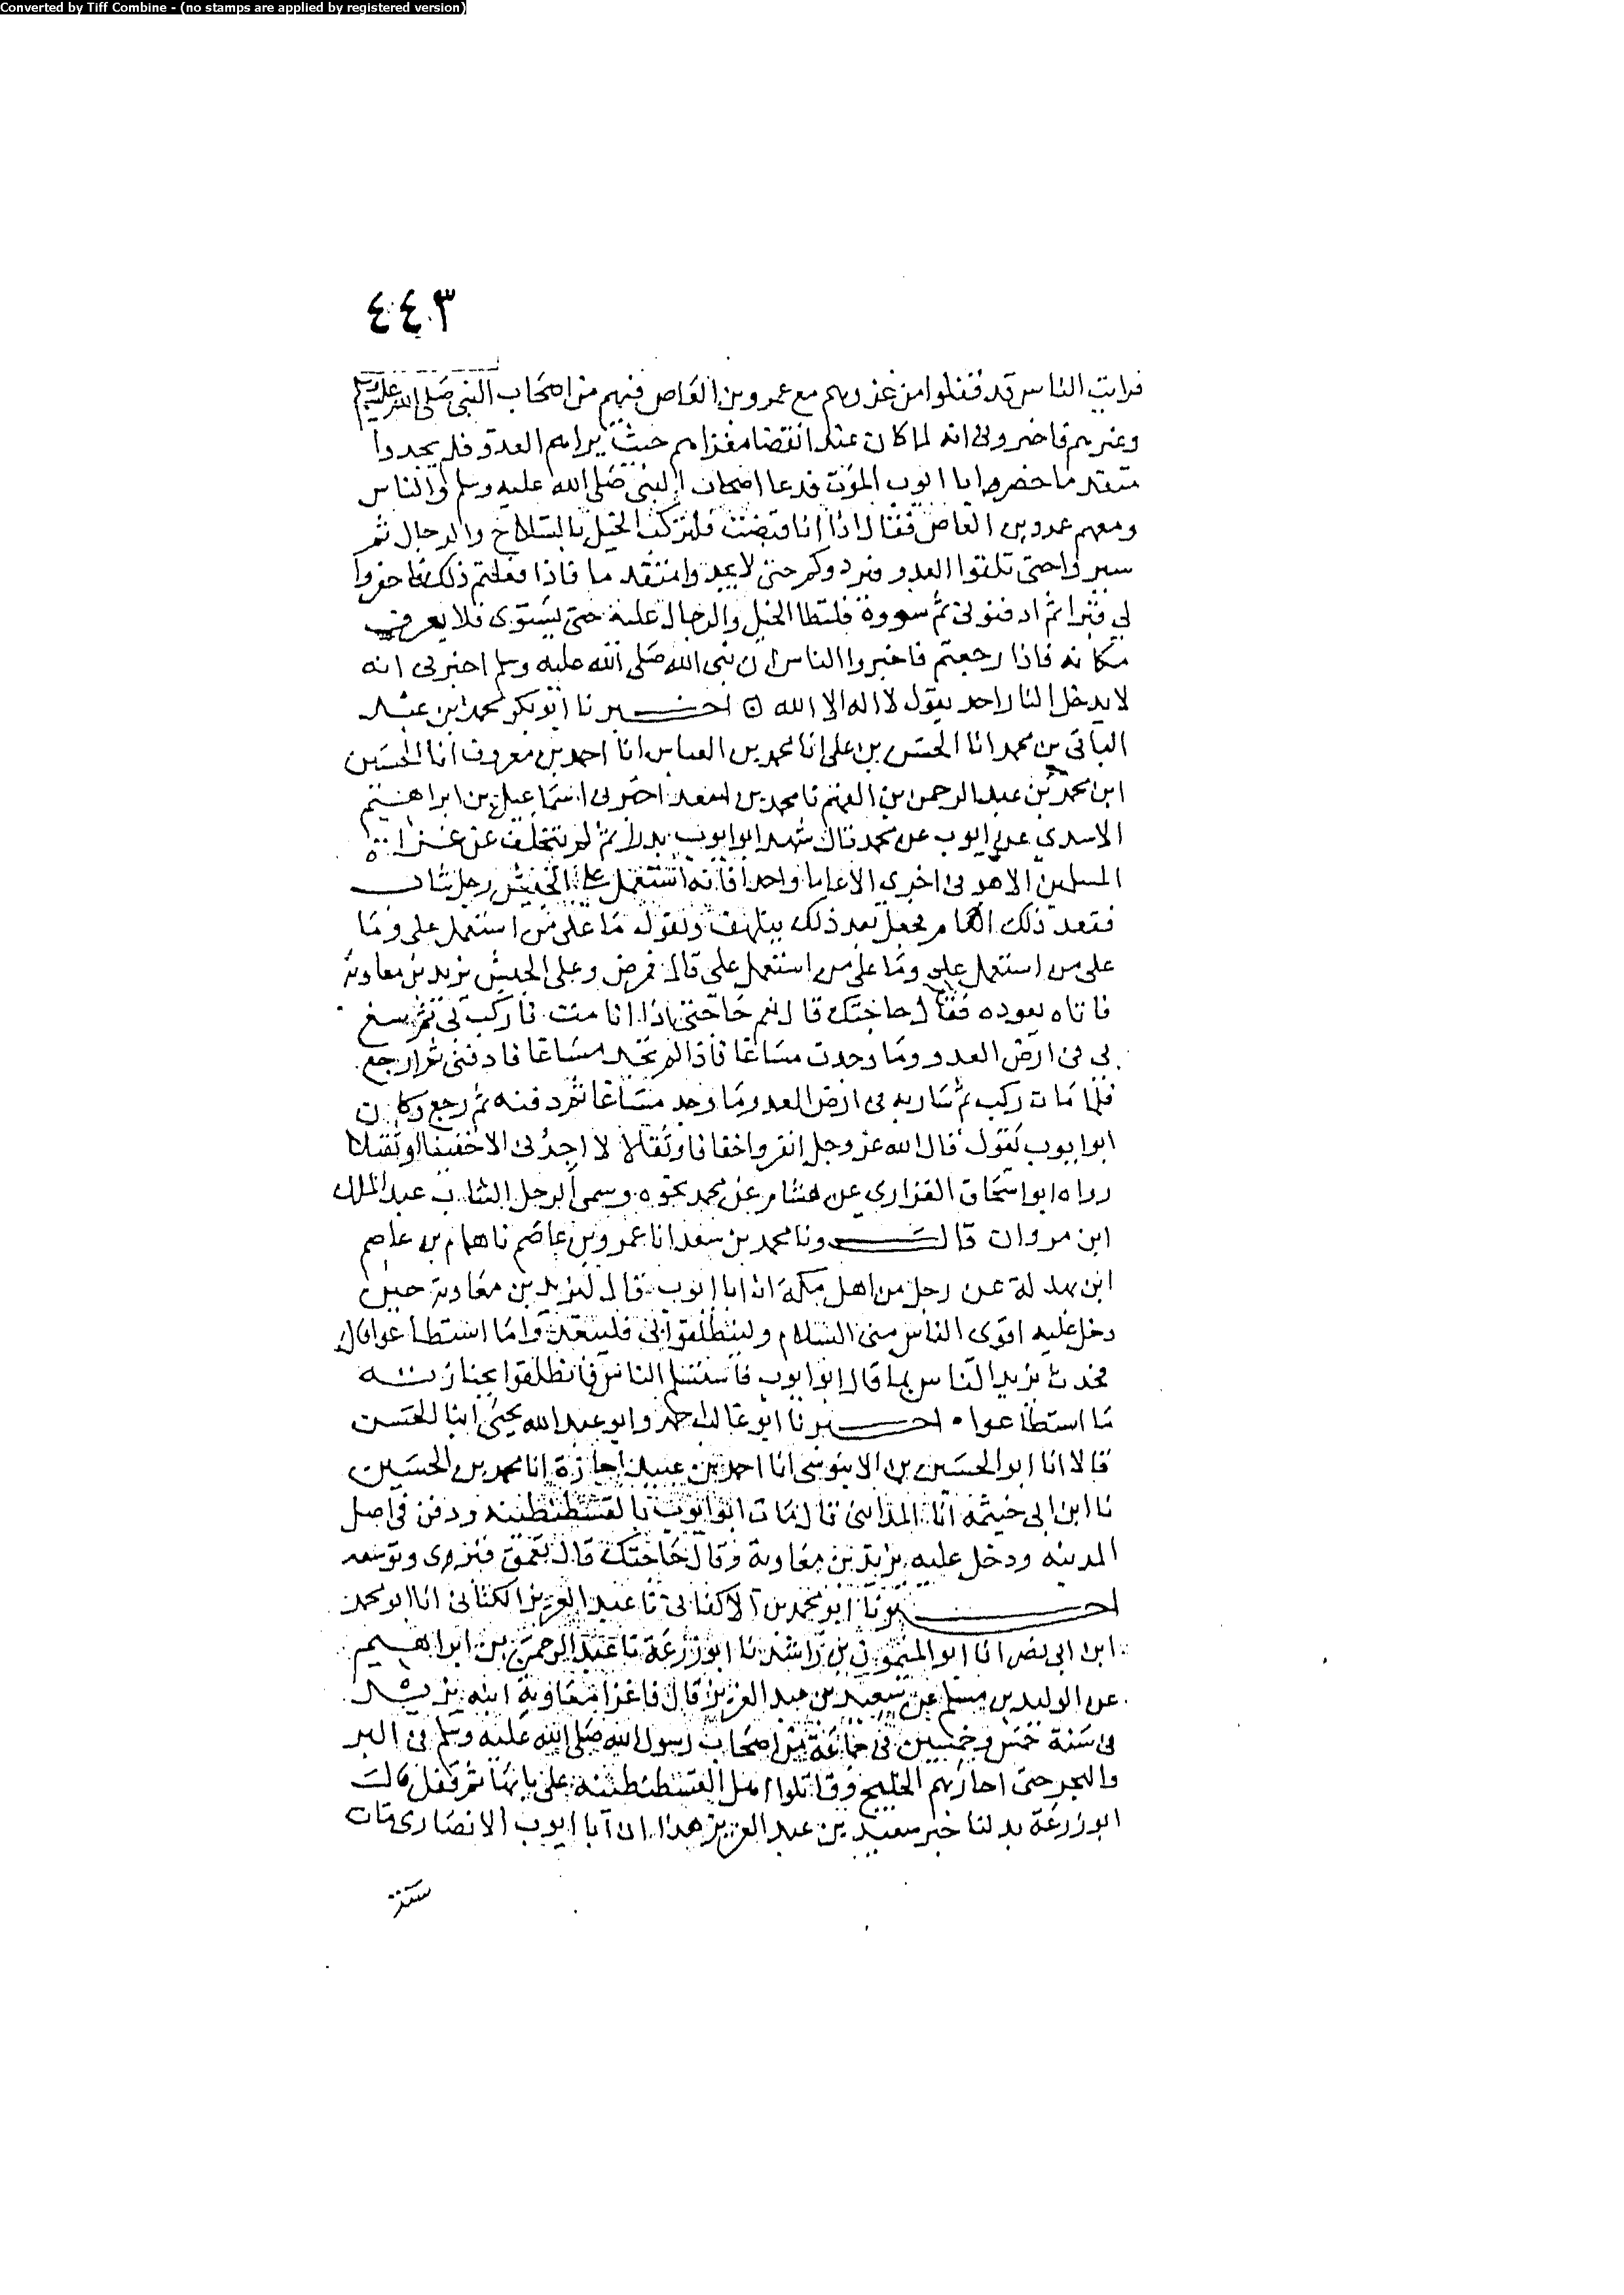 Converted by Tiff Combine - (no stamps are applied by registered version)
٤٤٣
فرايت الناس قد قفلوا من غزوهم مع عمرو بن العاص فيهم من اصحاب النبي صلى الله عليه وسلم
وغيرهم فاخبروني انه لما كان عند انقضا مغزاهم حيث يراهم العدو فلم يجدوا
متقدما حضر ابا ايوب الموت فدعا اصحاب النبي صلى الله عليه وسلم والناس
ومعهم عمرو بن العاص فقال اذا انا قبضت فلتركب الخيل بالسلاح والرجال ثم
سيروا حتى تلقوا العدو فيردوكم حتى لا يجدوا متقدما فاذا فعلتم ذلك فاحفروا
لي قبرا ثم ادفنوني ثم سووه فلتطا الخيل والرجال عليه حتى يستوى فلا يعرف
مكانه فاذا رجعتم فاخبروا الناس ان نبي الله صلى الله عليه وسلم اخبرني انه
لا يدخل النار احد يقول لا اله الا الله اخبرنا ابو بكر محمد ابن عبد
الباقي بن محمد انا الحسن بن علي انا محمد بن العباس انا احمد بن معروف انا الحسين
ابن محمد بن عبد الرحمن بن الفهم نا محمد بن سعد اخبرني اسماعيل بن ابراهيم
الاسدي عن ايوب عن محمد قال شهد ابو ايوب بدرا ثم لم يتخلف عن غزاة
المسلمين الا هو في اخرى الا عاما واحدا فانه استعمل على الجيش رجل شاب
فقعد ذلك العام فجعل بعد ذلك يتلهف ويقول ما على من استعمل على وما
على من استعمل على وما على من استعمل على قال فمرض وعلى الجيش يزيد بن معاوية
فاتاه يعوده فقال حاجتك قال نعم حاجتي اذا انا مت فاركب بي ثم سغ
بي في ارض العدو وما وجدت مساغا فاذا لم تجد مساغا فادفني ثم ارجع
فلما مات ركب ثم سار به في ارض العدو وما وجد مساغا ثم دفنه ثم رجع وكان
ابو ايوب يقول قال الله عز وجل انفروا خفافا وثقالا لا اجدني الا خفيفا او ثقيلا
رواه ابو اسحاق الفزاري عن هشام عن محمد نحوه وسمى الرجل الشاب عبد الملك
ابن مروان قال ونا محمد بن سعد انا عمرو بن عاصم نا همام بن عاصم
ابن بهدلة عن رجل من اهل مكة ان ابا ايوب قال ليزيد بن معاوية حين
دخل عليه اقوى الناس مني السلام ولينطلقوا بي فليبعدوا ما استطاعوا قال
فحدث يزيد الناس بما قال ابو ايوب فاستسلم الناس فانطلقوا بجنازته
ما استطاعوا اخبرنا ابو غالب احمد وابو عبد الله يحيى ابنا الحسن
قالا انا ابو الحسين بن الابنوسى انا احمد بن عبيد اجازة انا محمد بن الحسين
نا ابن ابي خيثمة انا المدايني قال مات ابو ايوب بالقسطنطينية ودفن في اصل
المدينه ودخل عليه يزيد بن معاوية وقال حاجتك قال تعمق قبرى وتوسعه
اخبرنا ابو محمد بن الاكفاني نا عبد العزيز الكتاني انا ابو محمد
ابن ابي نصر انا ابو الميمون بن راشد نا ابو زرعة نا عبد الرحمن بن ابراهيم
عن الوليد بن مسلم عن سعيد بن عبد العزيز قال فاغزا معاوية ابنه يزيد
في سنة خمس وخمسين في جماعة من اصحاب رسول الله صلى الله عليه وسلم في البر
والبحر حتى اجازبهم الخليج وقاتلوا اهل القسطنطينية على بابها ثم قفل قال
ابو زرعة يدلنا خبر سعيد بن عبد العزيز هذا ان ابا ايوب الانصارى مات
سنة